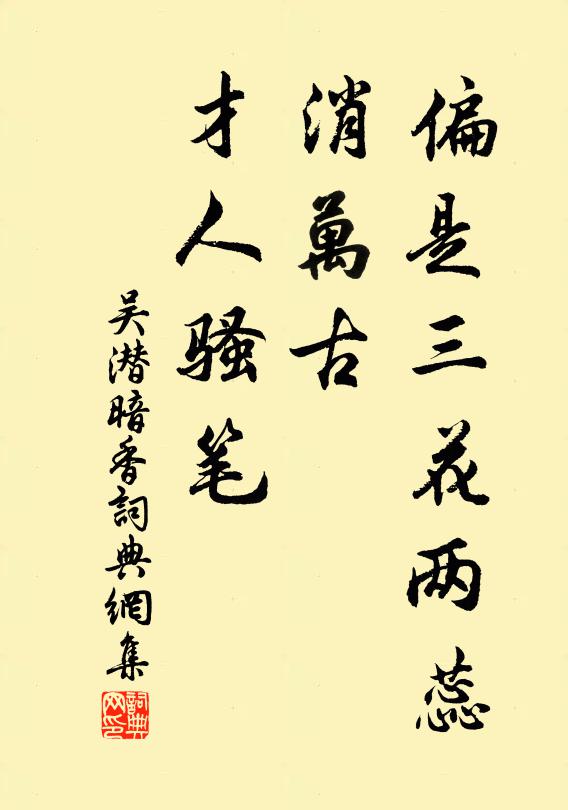 偏是三花两蕊
消萬古
才人骚笔
吴潜暗香詞典網集
詞典网印